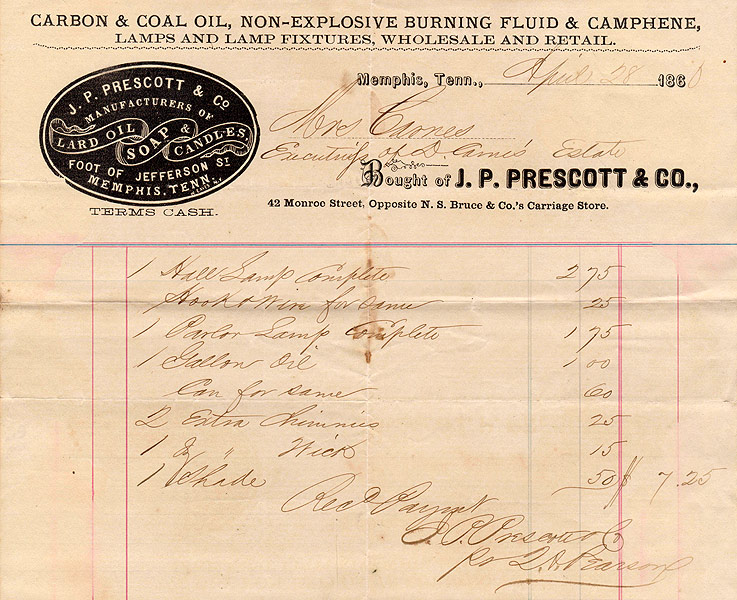 CARBON & COAL OIL, NON-EXPLOSIVE BURNING FLUID & CAMPHENE,
LAMPS AND LAMP FIXTURES, WHOLESALE AND RETAIL.
J. P. PRESCOTT & CO
MANUFACTURERS OF
LARD OIL SOAP & CANDLES,
FOOT OF JEFFERSON ST
MEMPHIS, TENN.
TERMS CASH.
Memphis, Tenn., April 28 1860
Mrs Carnes
Executrix of D. Carnes Estate
Bought of J. P. PRESCOTT & CO.,
42 Monroe Street, Opposite N. S. Bruce & Co.'s Carriage Store.
1 Hall Lamp Complete 2 75
Hook & Wire for same 25
1 Parlor Lamp Complete 1 75
1 Gallon Oil 1 00
Can for same 60
2 Extra Chimnies 25
1 " Wick 15
1 Shade 50 $ 7.25
Recd Paymt
J. P. Prescott & Co
Pearson